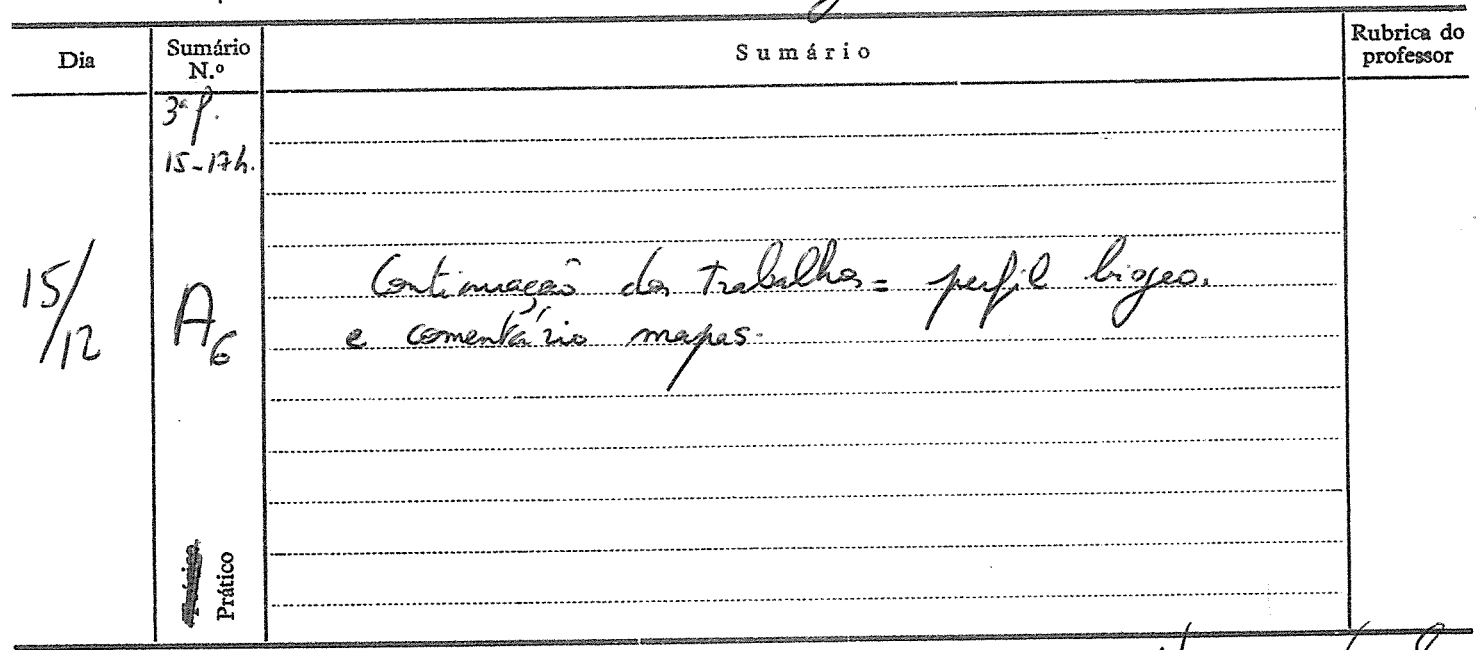 Dia
Sumário
N.º
Sumário
Rubrica do
professor
3ª f.
15-17h.
15/12
A6
Continuação dos trabalhos = perfil biogeo.
e comentário mapas.
Prático